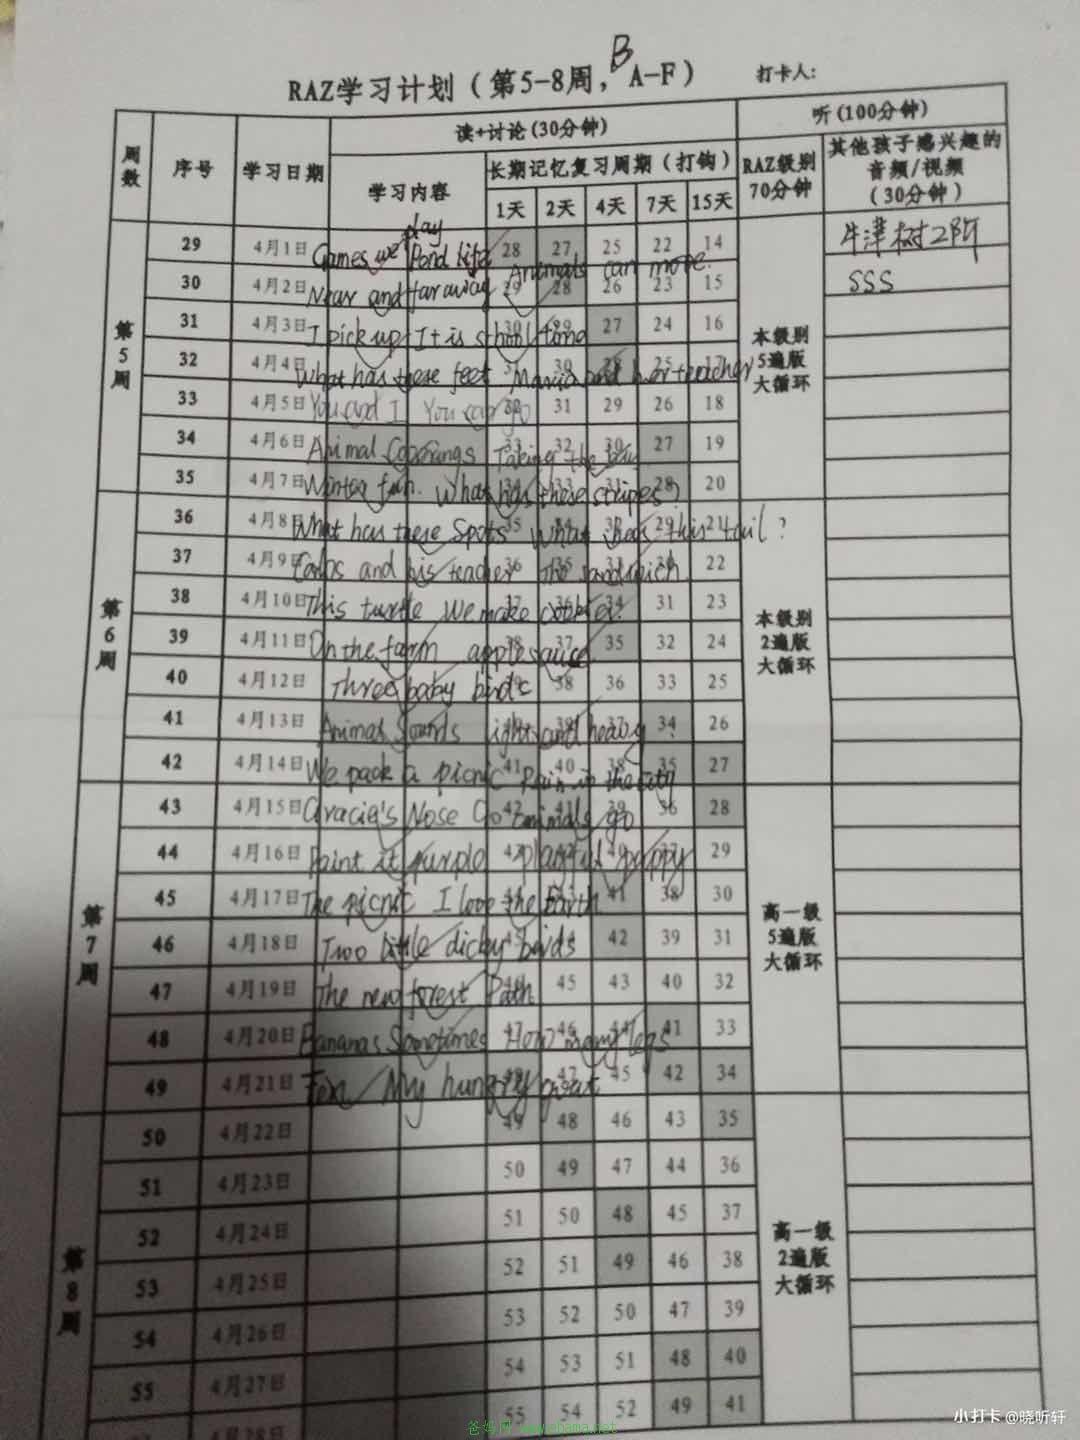 RAZ学习计划（第5-8周，B A-F） 打卡人:
周数 序号 学习日期 读+讨论(30分钟) 听(100分钟)
学习内容 长期记忆复习周期(打钩) RAZ级别 70分钟 其他孩子感兴趣的音频/视频 (30分钟)
1天 2天 4天 7天 15天
第5周
29 4月1日 Games we play Pond life 28 27 25 22 14 牛津树2阶
30 4月2日 Near and faraway Animals can move. 29 28 26 23 15 SSS
31 4月3日 I pick up It is school time 30 29 27 24 16
32 4月4日 What has these feet Maria and her teacher 30 28 25 17
33 4月5日 You and I You can go 32 31 29 26 18
34 4月6日 Animal Coverings Taking the bus 33 32 30 27 19
35 4月7日 Winter fun. What has these stripes? 34 33 31 28 20
本级别 5遍版 大循环
第6周
36 4月8日 What has these Spots What has this tail? 35 34 32 29 21
37 4月9日 Carlos and his teacher The sandwich. 36 35 33 30 22
38 4月10日 This turtle We make cookies. 37 36 34 31 23
39 4月11日 On the farm applesauce 38 37 35 32 24
40 4月12日 Three baby birds 39 38 36 33 25
41 4月13日 Animal Sounds light and heavy? 39 37 34 26
42 4月14日 We pack a picnic Rain in the city 41 40 38 35 27
本级别 2遍版 大循环
第7周
43 4月15日 Gracie's Nose Go animals go 42 41 39 36 28
44 4月16日 Paint it purple playful puppy 43 42 40 37 29
45 4月17日 The picnic I love the Earth 44 43 41 38 30
46 4月18日 Two little dicky birds 42 39 31
47 4月19日 The new forest Path 45 43 40 32
48 4月20日 Bananas Sometimes How many legs 47 46 44 41 33
49 4月21日 My hungry 47 45 42 34
高一级 5遍版 大循环
第8周
50 4月22日 49 48 46 43 35
51 4月23日 50 49 47 44 36
52 4月24日 51 50 48 45 37
53 4月25日 52 51 49 46 38
54 4月26日 53 52 50 47 39
55 4月27日 54 53 51 48 40
4月28日 55 54 52 49 41
高一级 2遍版 大循环
爸妈网 www.cbama.net
小打卡 @晓听轩